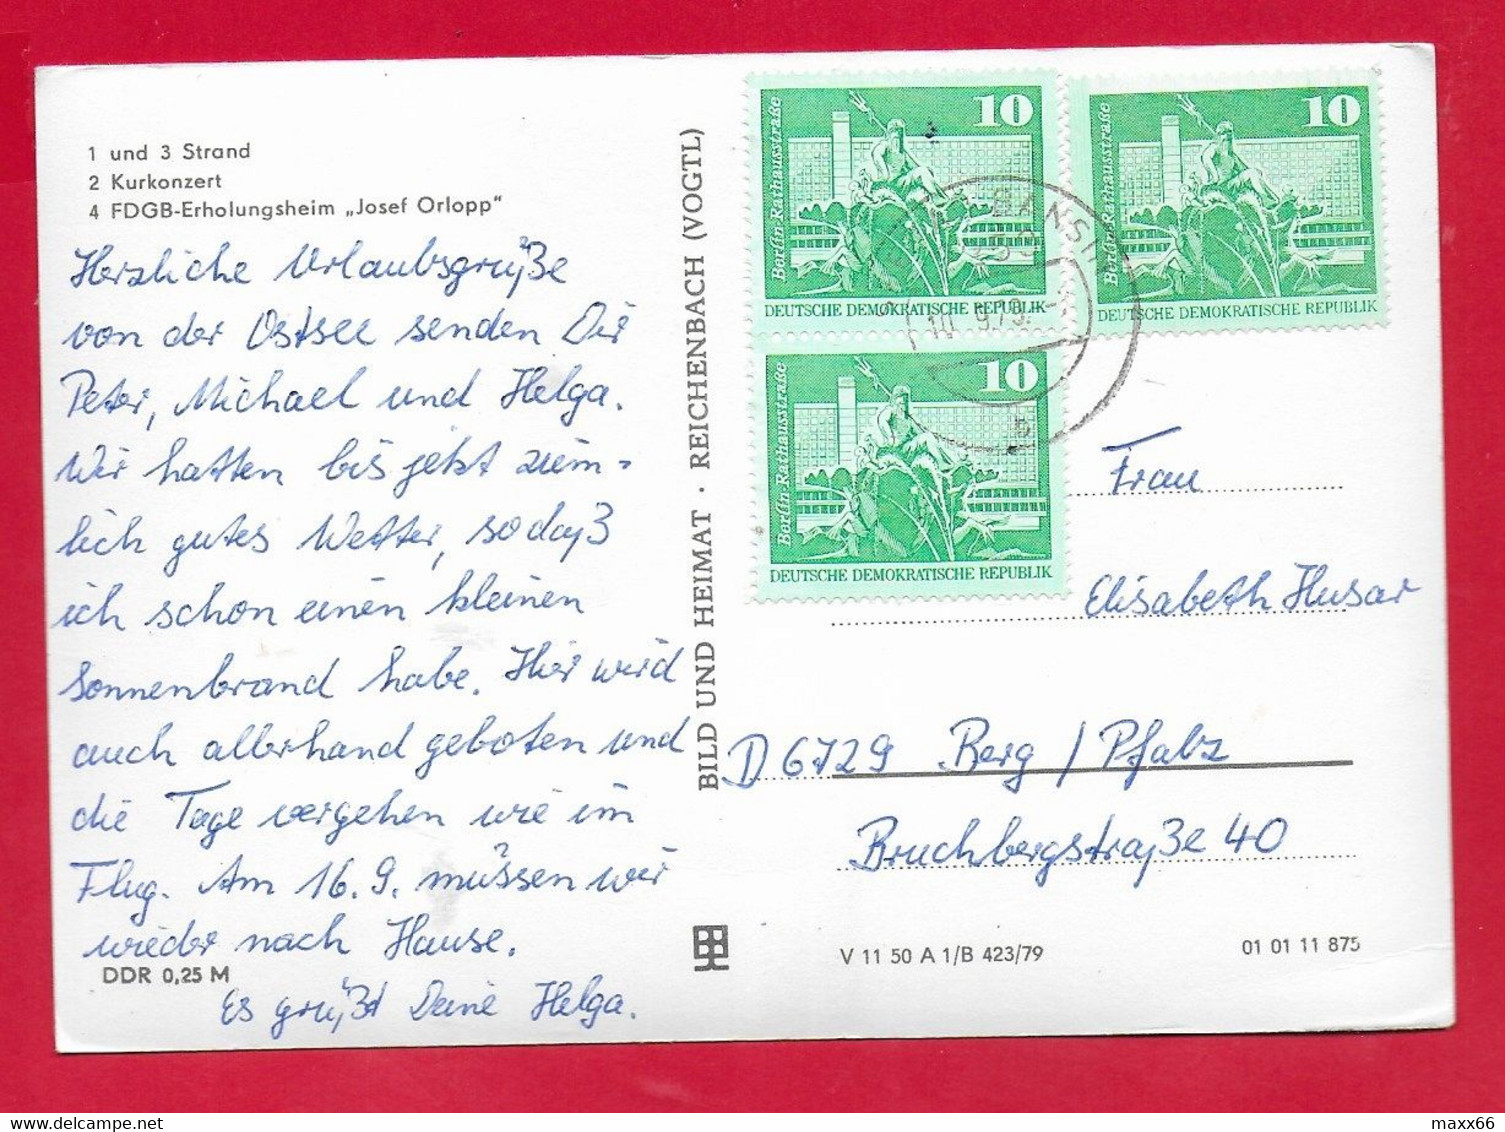 1 und 3 Strand
2 Kurkonzert
4 FDGB-Erholungsheim „Josef Orlopp"
Herzliche Urlaubsgrüße
von der Ostsee senden Dir
Peter, Michael und Helga.
Wir hatten bis jetzt ziem-
lich gutes Wetter, so daß
ich schon einen kleinen
Sonnenbrand habe. Hier wird
auch allerhand geboten und
die Tage vergehen wie im
Flug. Am 16.9. müssen wir
wieder nach Hause.
DDR 0,25 M
Es grüßt Deine Helga.
BILD UND HEIMAT · REICHENBACH (VOGTL)
Berlin Rathausstraße
10
DEUTSCHE DEMOKRATISCHE REPUBLIK
Berlin Rathausstraße
10
DEUTSCHE DEMOKRATISCHE REPUBLIK
Berlin Rathausstraße
10
DEUTSCHE DEMOKRATISCHE REPUBLIK
BANSIN
10.9.79.
b
Frau
Elisabeth Husar
D 6729 Berg / Pfalz
Bruchbergstraße 40
V 11 50 A 1/B 423/79
01 01 11 875
maxx66